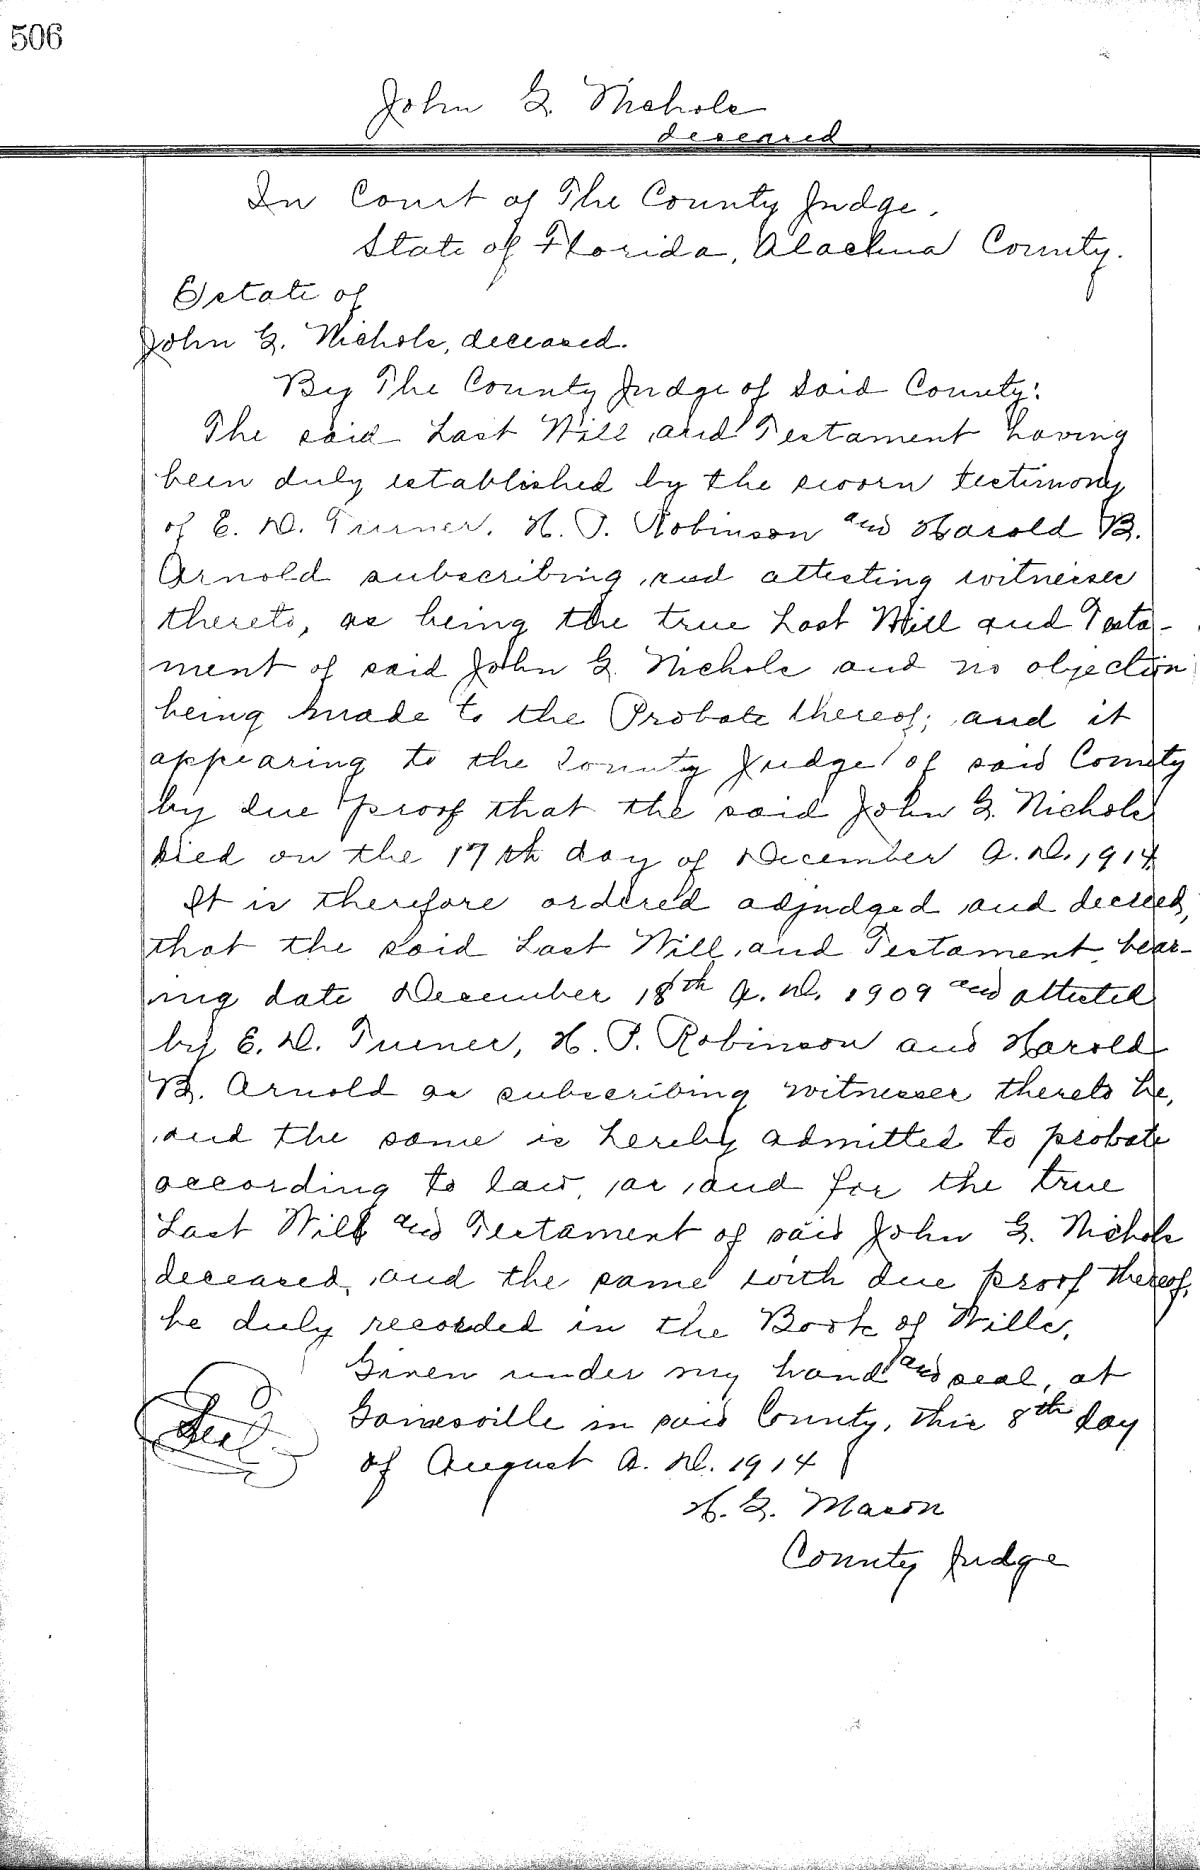 506
John G. Nichols
deceased
In Court of The County Judge.
State of Florida, Alachua County.
Estate of
John G. Nichols, deceased.
By The County Judge of Said County:
The said Last Will and Testament having
been duly established by the sworn testimony
of E. D. Turner, H. P. Robinson and Harold B.
Arnold subscribing and attesting witnesses
thereto, as being the true Last Will and Testa-
ment of said John G. Nichols and no objection
being made to the Probate thereof; and it
appearing to the County Judge of said County
by due proof that the said John G. Nichols
died on the 17th day of December A.D. 1914
It is therefore ordered adjudged and decreed,
that the said Last Will and Testament bear-
ing date December 18th A.D. 1909 and attested
by E. D. Turner, H. P. Robinson and Harold
B. Arnold as subscribing witnesses thereto be,
and the same is hereby admitted to probate
according to law, as and for the true
Last Will and Testament of said John G. Nichols
deceased, and the same with due proof thereof,
be duly recorded in the Book of Wills.
Given under my hand and seal, at
Seal
Gainesville in said County, this 8th day
of August A. D. 1914
H. G. Mason
County Judge